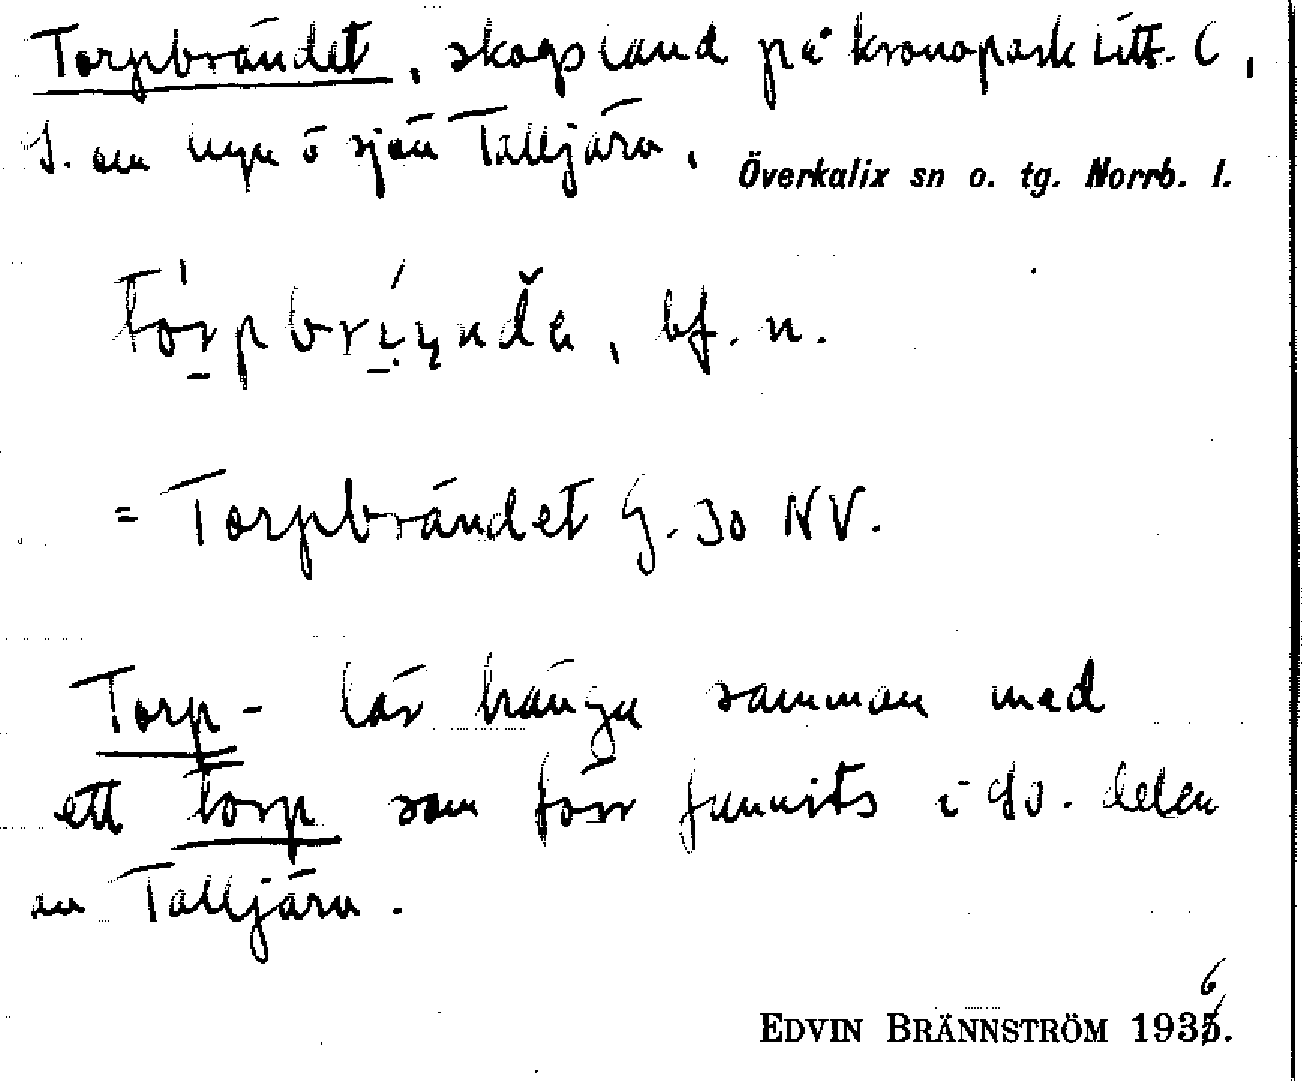 Torpbrändet, skogsland på kronopark Litt. C,
S. om byn o sjön Talljärv.
Överkalix sn o. tg. Norrb. l.
bf. n.
= Torpbrändet G. 30 NV.
Torp- lär hänga samman med
ett torp som förr funnits i sv. delen
av Talljärv.
6
EDVIN BRÄNNSTRÖM 1935.